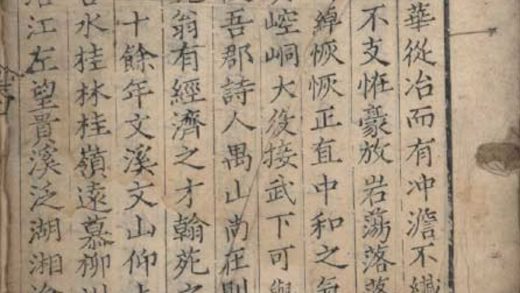 華從冶而有冲澹不纖
不支恠豪放岩蕩落落
綽恢恢正直中和之氣
崆峒大復接武下可與
吾郡詩人禺山尚在則
翁有經濟之才翰苑
十餘年文溪文山仰
水桂林桂嶺遠慕柳
江左望貴溪泛湖湘